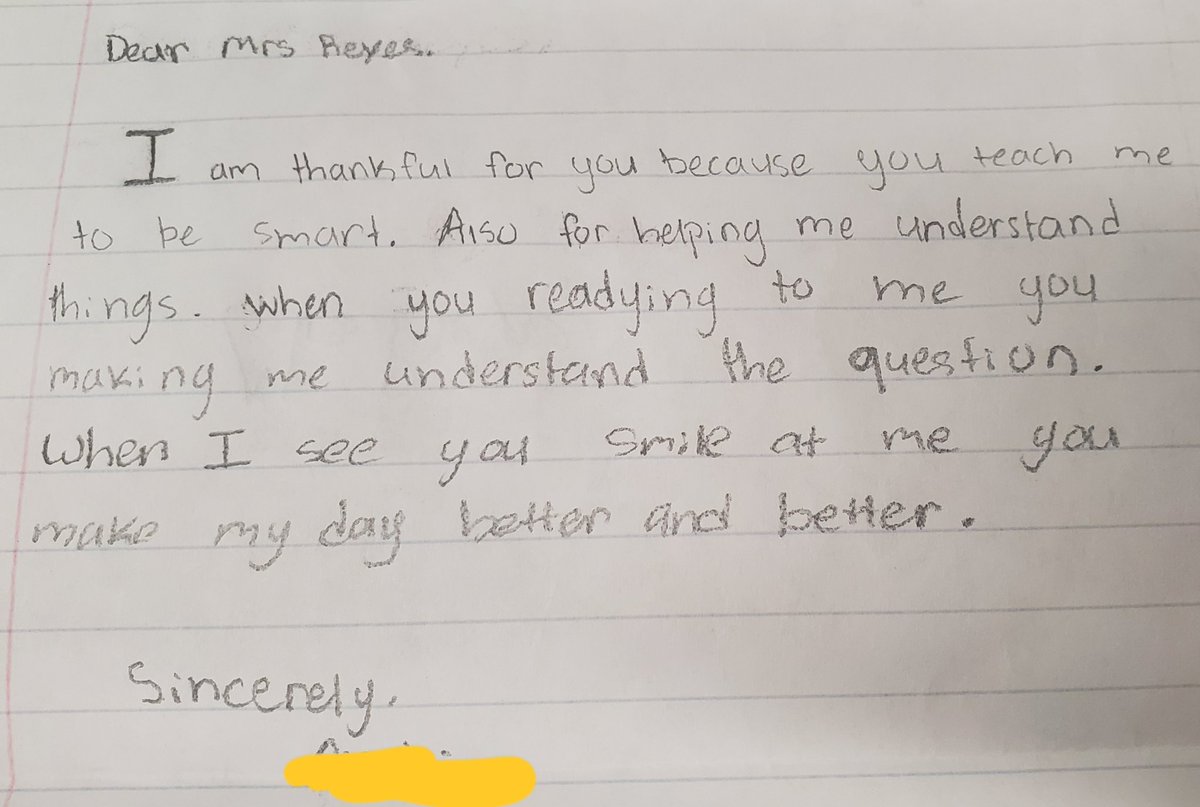 Dear Mrs Reyes.
I am thankful for you because you teach me
to be smart. Also for helping me understand
things. when you readying to me you
making me understand the question.
When I see you smile at me you
make my day better and better.
Sincerely.